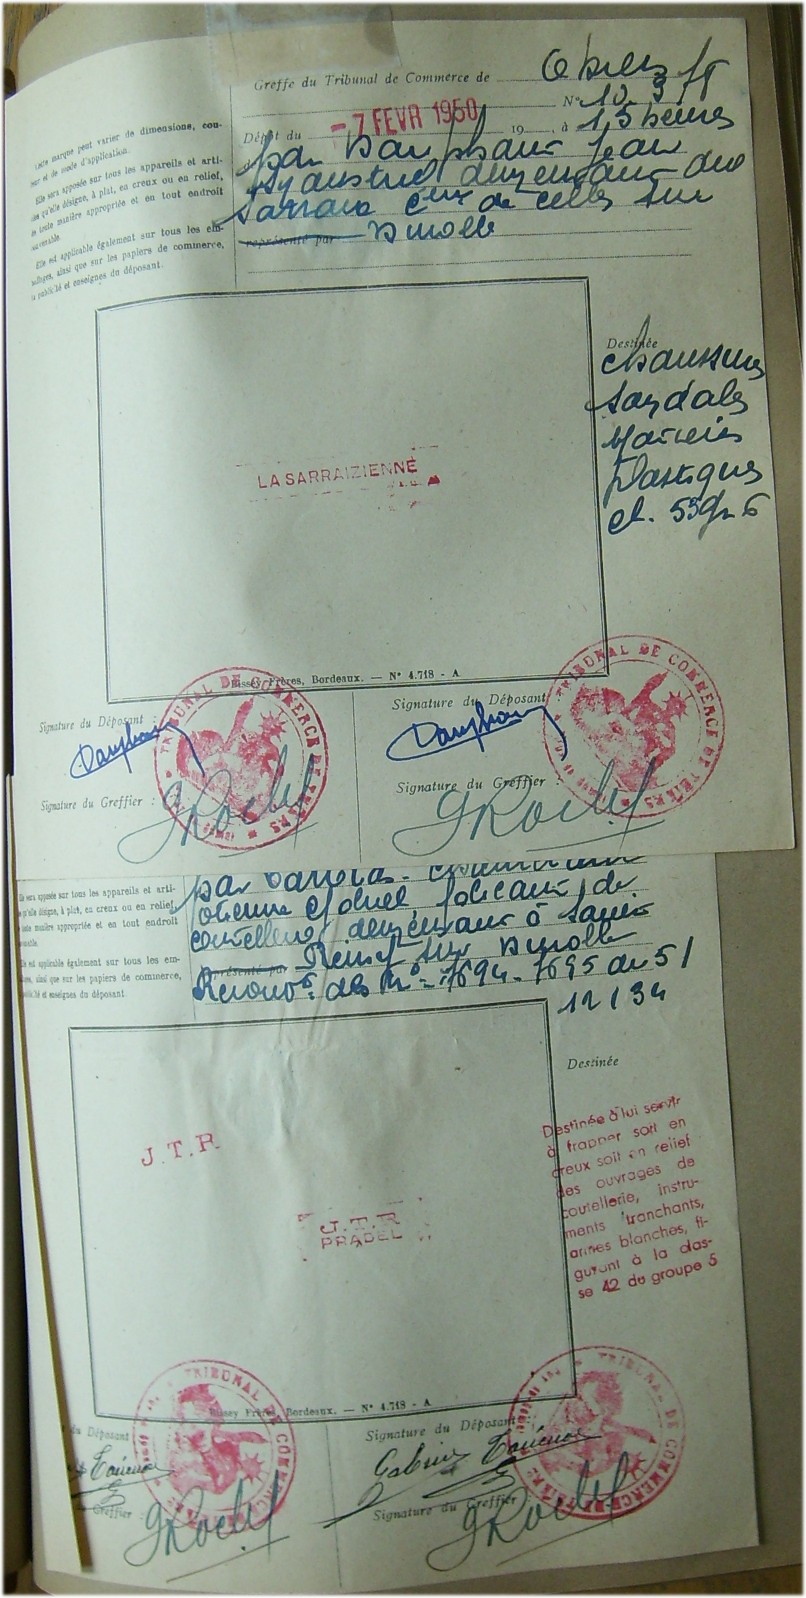 Greffe du Tribunal de Commerce de Thiers
N° 10.371
Dépôt du -7 FEVR 1950 19 , à 15 heures
par Dauphant Jean
industriel demeurant au
Sarraix Cne de Celles sur
représenté par Durolle
Cette marque peut varier de dimensions, cou-
leur et de mode d'application.
Elle sera apposée sur tous les appareils et arti-
cles qu'elle désigne, à plat, en creux ou en relief,
de toute manière appropriée et en tout endroit
convenable.
Elle est applicable également sur tous les em-
ballages, ainsi que sur les papiers de commerce,
la publicité et enseignes du déposant.
Destinée
chaussures
sandales
matières
plastiques
cl. 53 gr 6
LA SARRAIZIENNE
Bissey Frères, Bordeaux. — N° 4.718 - A
Signature du Déposant :
Dauphant
Signature du Greffier :
GRochef
TRIBUNAL DE COMMERCE DE THIERS
Signature du Déposant
Dauphant
Signature du Greffier :
GRochef
TRIBUNAL DE COMMERCE DE THIERS
Elle sera apposée sur tous les appareils et arti-
qu'elle désigne, à plat, en creux ou en relief,
toute manière appropriée et en tout endroit
convenable.
Elle est applicable également sur tous les em-
ballages, ainsi que sur les papiers de commerce,
publicité et enseignes du déposant
par
fabricant de
coutellerie demeurant à Saint
représenté par Rémy sur Durolle
Renouv. des N° 1694-1695 du 5/
12/34
Destinée
Destinée à lui servir
à frapper soit en
creux soit en relief
des ouvrages de
coutellerie, instru-
ments tranchants,
armes blanches, fi-
gurant à la clas-
se 42 du groupe 5
J.T.R
J.T.R
PRADEL
Bissey Frères, Bordeaux. — N° 4.718 - A
du Déposant
du Greffier :
GRochef
TRIBUNAL DE COMMERCE
Signature du Déposant
Signature du Greffier
GRochef
TRIBUNAL DE COMMERCE